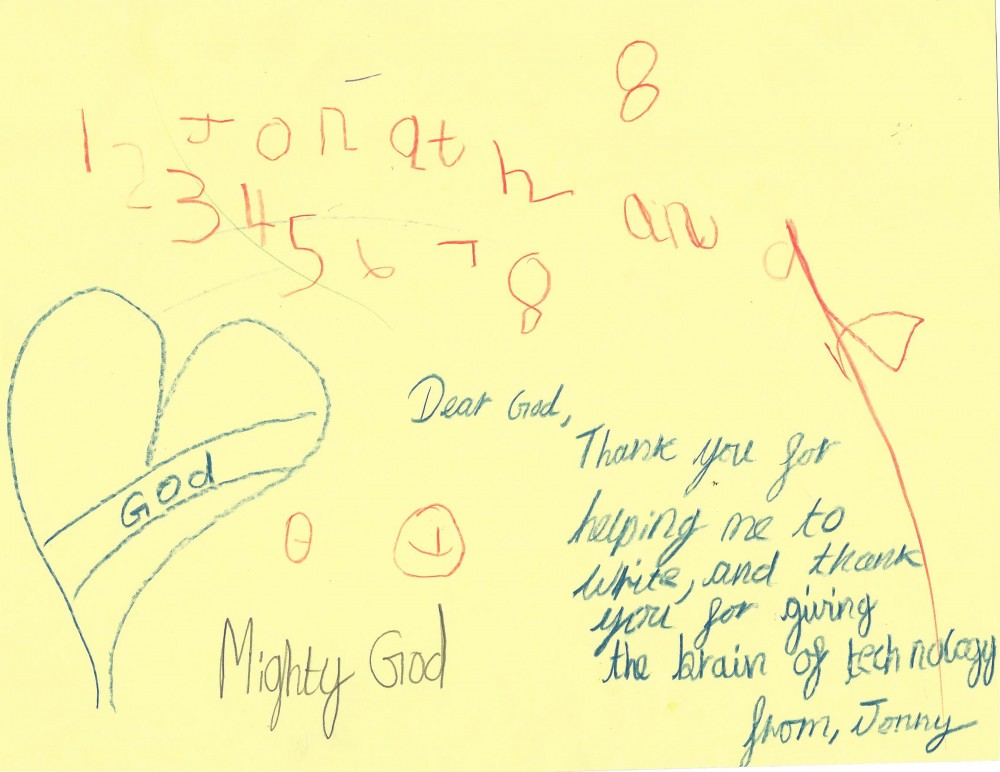 8
1 Jonath
2 3 4 5 6 7 8
an
Dear God,
Thank you for
helping me to
write, and thank
you for giving
the brain of technology
from, Jonny
God
Mighty God